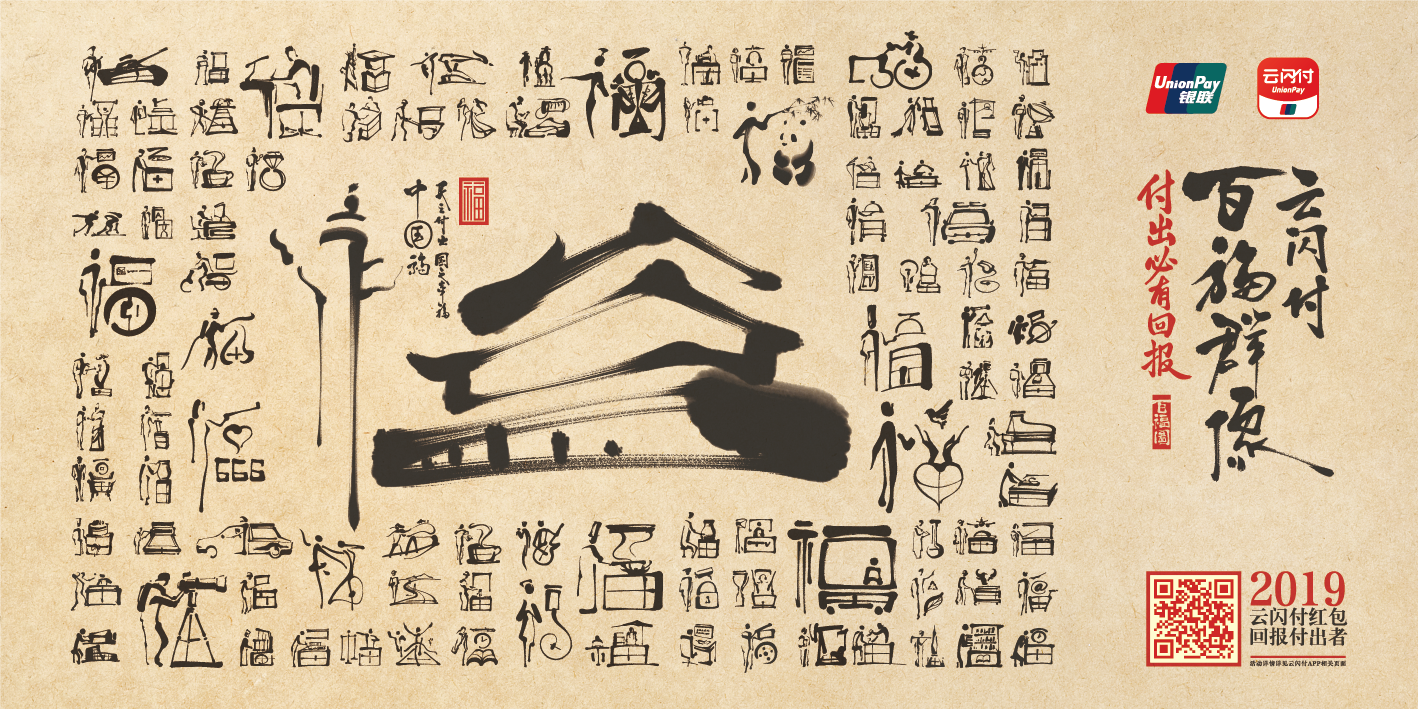 UnionPay
银联
云闪付
UnionPay
云闪付
百福群像
付出必有回报
百福图
福
中国福
天之付出 国之幸福
666
2019
云闪付红包
回报付出者
活动详情详见云闪付APP相关页面